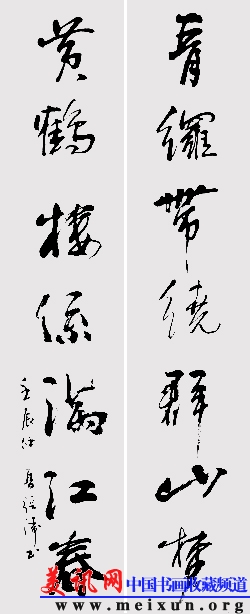 青罗帶繞群山梅
黄鹤樓係满江春
壬辰仲
书
美讯网
中国书画收藏频道
www.meixun.org